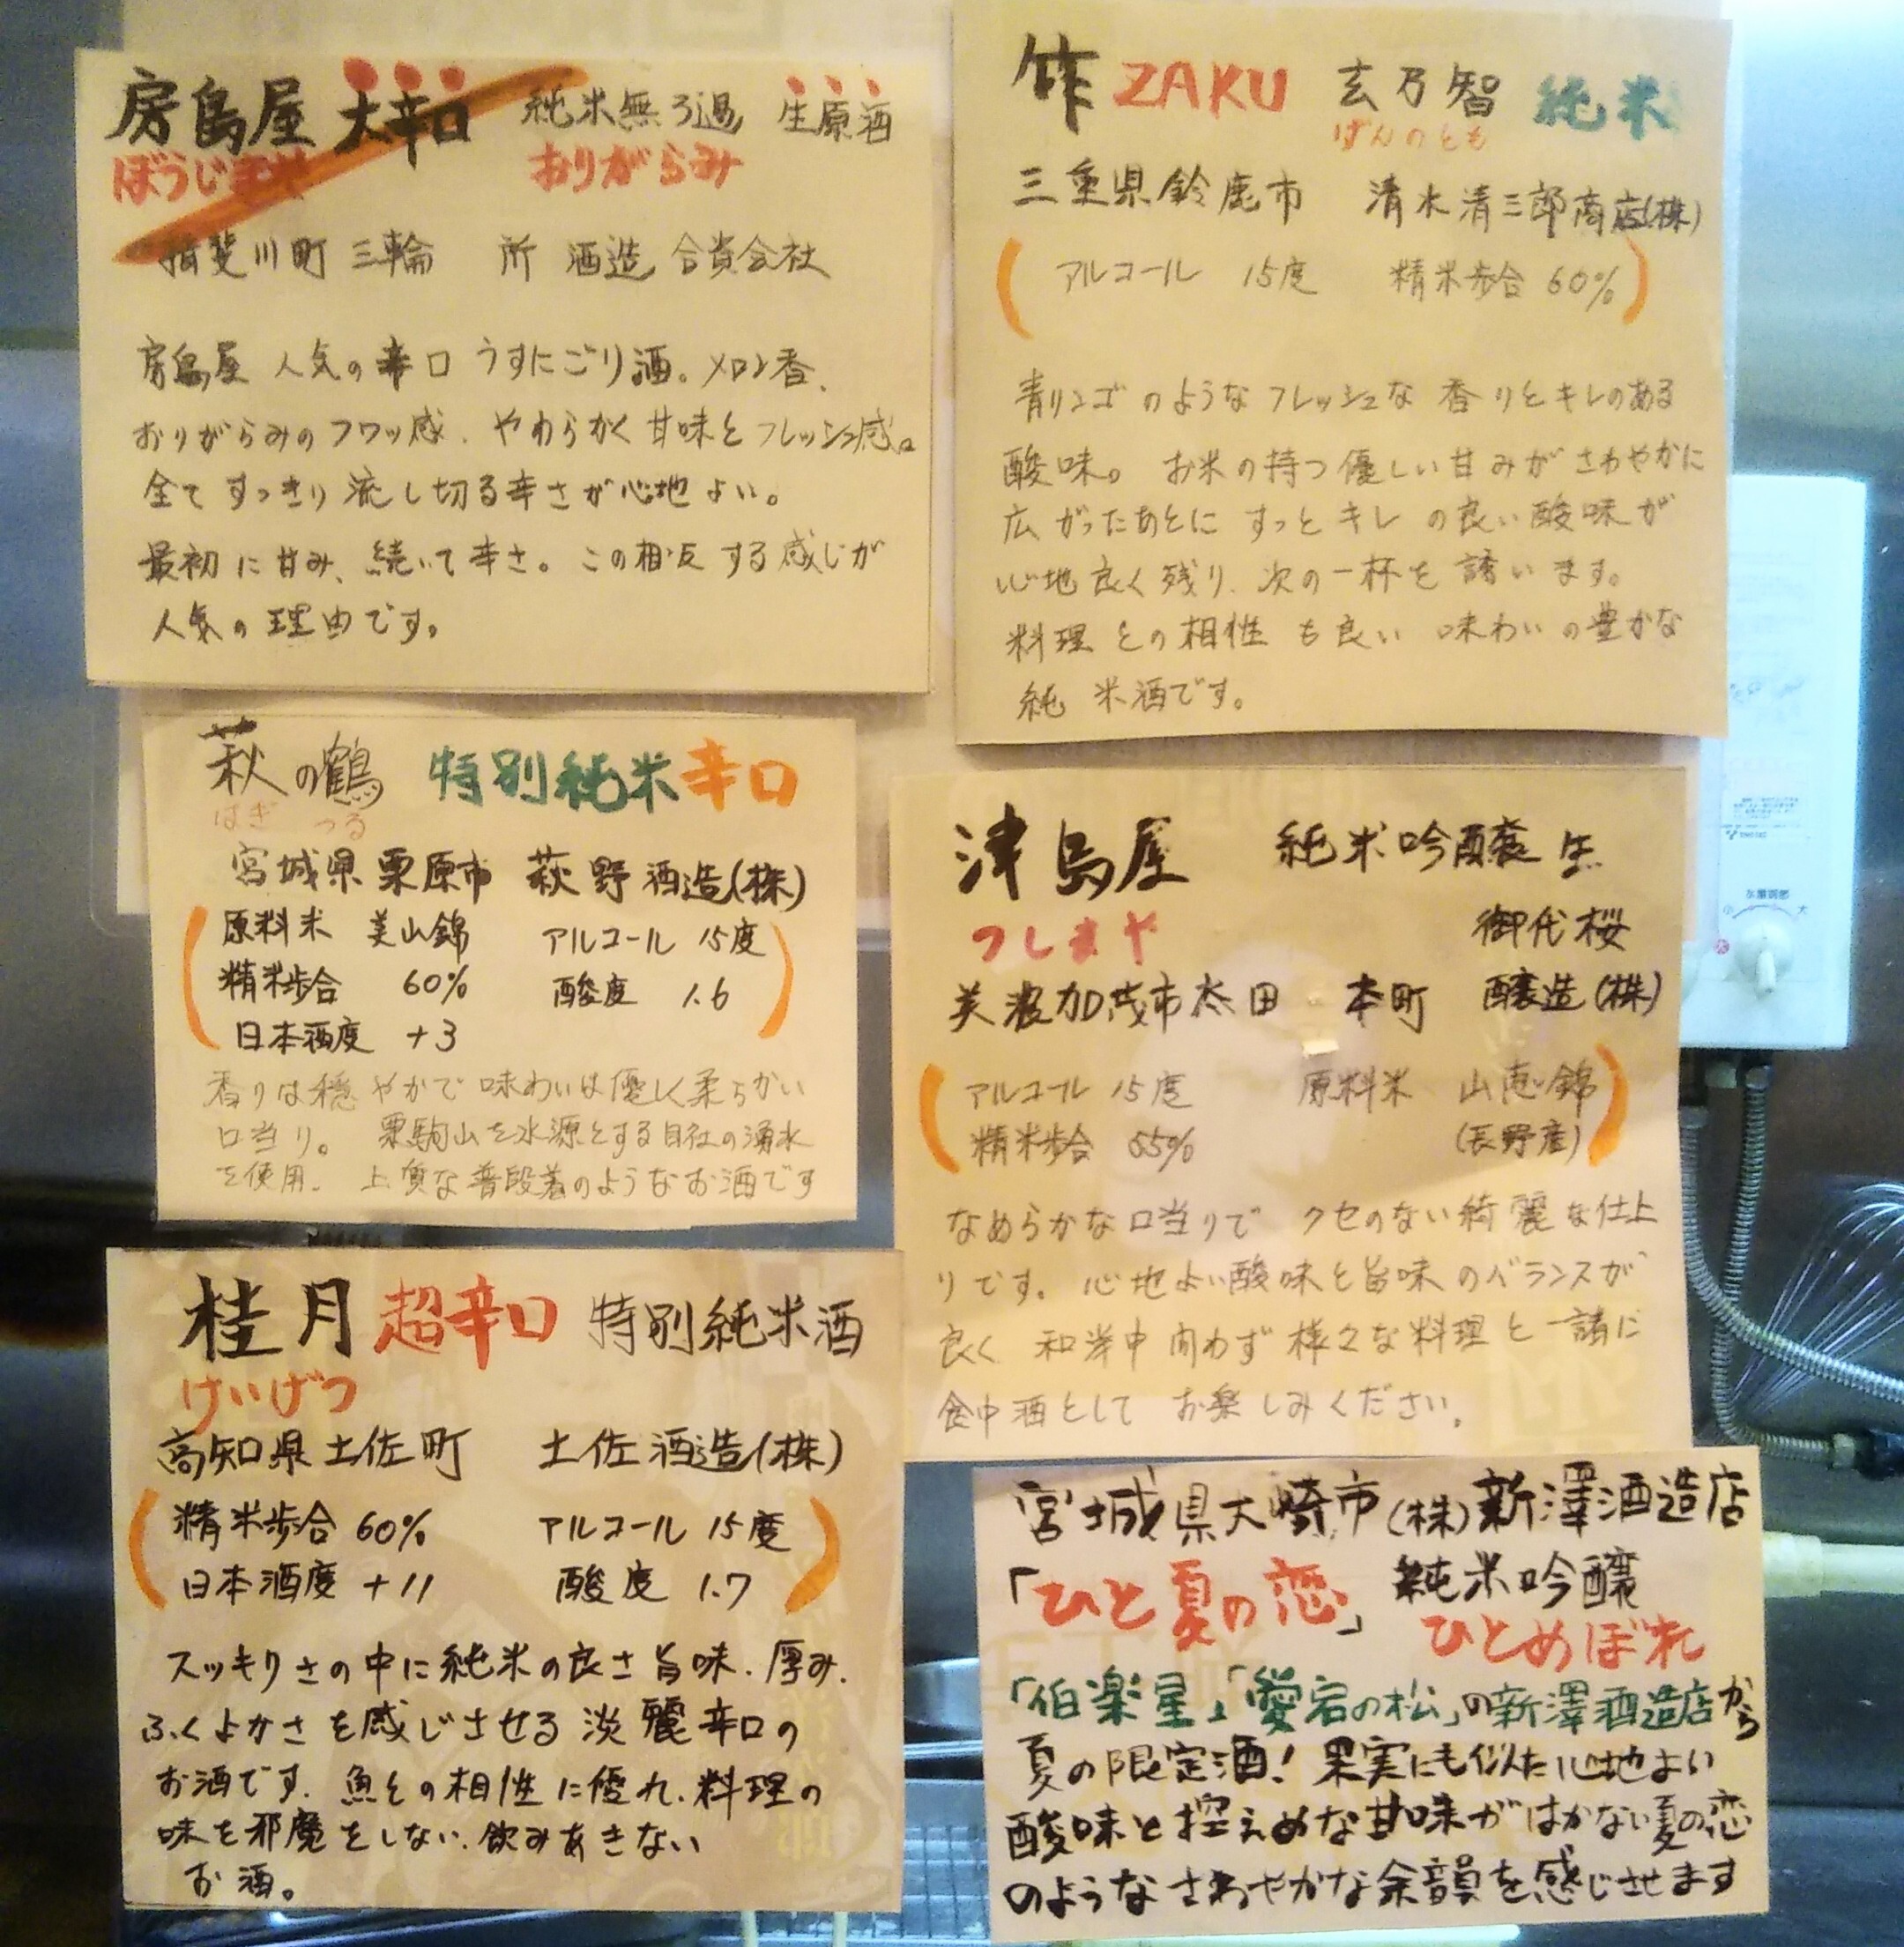 房島屋 大辛口 純米無ろ過 生原酒
ぼうじまや おりがらみ
揖斐川町 三輪 所 酒造 合資会社
房島屋 人気の辛口 うすにごり酒。メロン香、
おりがらみのフワッ感、やわらかく甘味とフレッシュ感。
全てすっきり流し切る辛さが心地よい。
最初に甘み、続いて辛さ。この相反する感じが
人気の理由です。
作 ZAKU 玄乃智 純米
げんのとも
三重県鈴鹿市 清水清三郎商店(株)
アルコール 15度 精米歩合 60%
青リンゴのようなフレッシュな香りとキレのある
酸味。お米の持つ優しい甘みがさわやかに
広がったあとにすっとキレの良い酸味が
心地良く残り、次の一杯を誘います。
料理との相性も良い味わいの豊かな
純米酒です。
萩の鶴 特別純米辛口
はぎ つる
宮城県栗原市 萩野酒造(株)
原料米 美山錦 アルコール 15度
精米歩合 60% 酸度 1.6
日本酒度 +3
香りは穏やかで味わいは優しく柔らかい
口当り。栗駒山を水源とする自社の湧水
を使用。上質な普段着のようなお酒です
津島屋 純米吟醸 生
つしまや 御代桜
美濃加茂市太田 本町 醸造(株)
アルコール 15度 原料米 山恵錦
精米歩合 55% (長野産)
なめらかな口当りでクセのない綺麗な仕上
りです。心地よい酸味と旨味のバランスが
良く 和洋中問わず様々な料理と一諸に
食中酒としてお楽しみください。
桂月 超辛口 特別純米酒
けいげつ
高知県土佐町 土佐酒造(株)
精米歩合 60% アルコール 15度
日本酒度 +11 酸度 1.7
スッキリさの中に純米の良さ旨味、厚み、
ふくよかさを感じさせる淡麗辛口の
お酒です。魚との相性に優れ、料理の
味を邪魔をしない、飲みあきない
お酒。
宮城県大崎市(株)新澤酒造店
「ひと夏の恋」 純米吟醸
ひとめぼれ
「伯楽星」「愛宕の松」の新澤酒造店から
夏の限定酒!果実にも似た心地よい
酸味と控えめな甘味がはかない夏の恋
のようなさわやかな余韻を感じさせます
小 水量調節 大